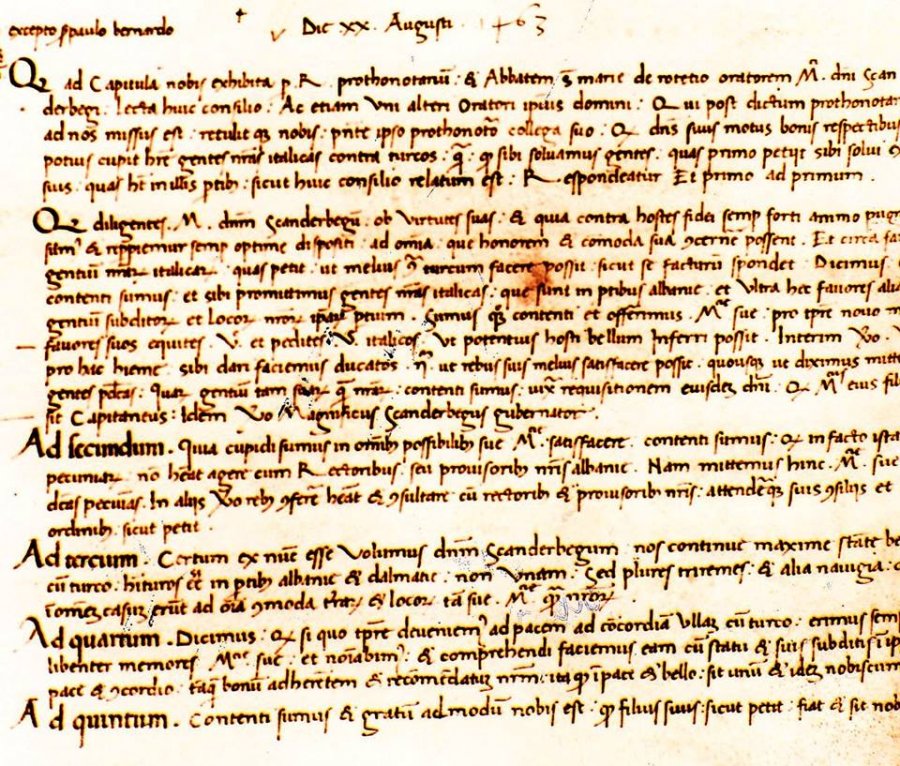 excepto ser paulo bernardo
Die xx Augusti 1463
Q ad Capitula nobis exhibita p R prothonotariū : & Abbatem s marie de rotetio oratorem M. dni Scan
derbegi : lecta huic consilio : Ac etiam Vni alteri Oratori ipius domini : Qui post dictum prothonotar
ad nos missus est : retulit qz nobis : pnte ipso prothonotō collega suo : Q dns suus motus bonis respectibus
potius cupit hre gentes nras italicas contra turcos : q : qp sibi soluamus gentes : quas primo petijt sibi solui
suis . quas ht in illis ptib : sicut huic consilio relatum est : Respondeatur Et primo ad primum .
Q diligentes . M. dnm Scanderbegū : ob virtutes suas : & quia contra hostes fidei semp forti animo pug
sum & repiemur semp optime dispositi : ad omīa : que honorem & comoda sua cerne possent . Et circa fa
gentiū nrar italicar : quas petit : ut melius turcum facere possit : sicut se facturū spondet : Dicimus
contenti sumus : et sibi promittimus gentes nras italicas : que sunt in ptibus albanie : et Vltra hec fauores alia
gentiū subditor et locor nror ptium . Sumus qz contenti et offerimus . Mti sue : pro tpre nouo
fauores suos equites . V. et pedites . V. italicos . ut potentius hosti bellum Inferri possit . Interim Vo .
pro hac hieme : sibi dari faciemus ducatos . ut rebus suis melius satisfacere possit : quousqz ut diximus mitte
gentes pdcas : Quar gentiū tam suar q nrar : contenti sumus : iuxta requisitionem eiusdez dni . Q Mte eius fil
sit Capitaneus : Idem Vo Magnificus Scanderbegus gubernator .
Ad secundum . Quia cupidi sumus in omīb possibilib sue Mti satisfacere . contenti sumus : Q in facto ista
pecuniar . nō heat agere cum Rectoribus : seu prouisorib nris albanie . Nam mittemus hinc . Mti sue
dcas pecunias . In aliis Vo reb 9ferre heat & 9sultare cū rectorib & prouisorib nris : attendeqz suis 9siliis et
ordinib : sicut petit .
Ad tercium . Certum ex nūc esse Volumus dnm Scanderbegum nos continue maxime stāte be
cū turco : hituros eē in ptib albanie & dalmatie : non Vnam . Sed plures triremes : & alia nauigia :
ī omez casuz erūt ad oīa 9moda trar & locor tā sue . Mtis qp nror .
Ad quartum . Dicimus : Q si quo tpre deueniem ad pacem ad cōcordiā Vllaz cū turco : erimus semp
libenter memores . Mtis sue : et noīabim : & comprehendi faciemus eam cū statu & suis subditis ī ip
pace & 9cordio : taqz bonū adherētem & recomēdatuz nrm : ita qp ī pace & bello : sit unū & idez nobiscum
Ad quintum . Contenti sumus & gratū admodū nobis est : qp filius suus : sicut petit : fiat & sit nob